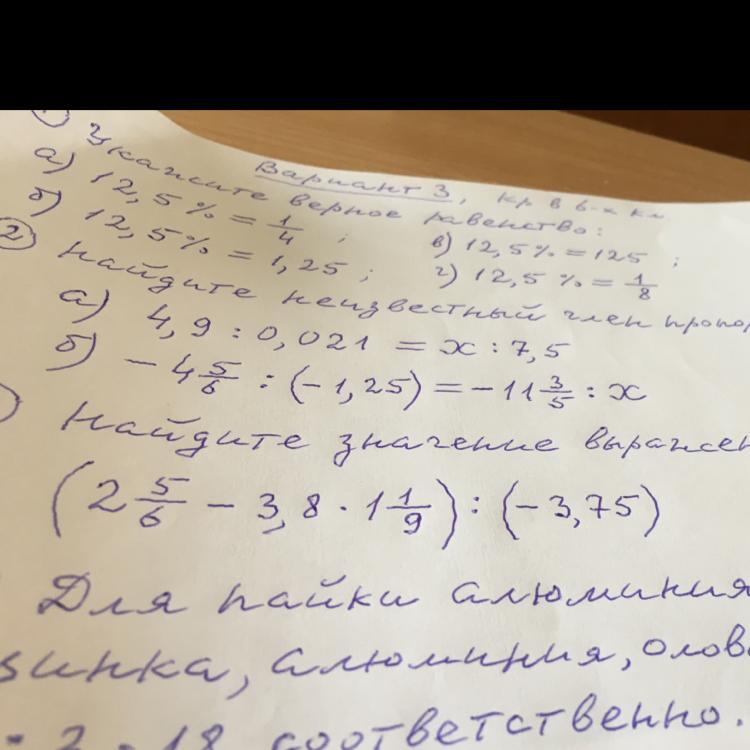 Вариант 3, кр в 6-х кл.
① Укажите верное равенство:
а) 12,5% = 1/4 ; в) 12,5% = 125 ;
б) 12,5% = 1,25 ; г) 12,5 % = 1/8
② Найдите неизвестный член пропор
а) 4,9 : 0,021 = x : 7,5
б) − 4 5/6 : (−1,25) = −11 3/5 : x
Найдите значение выражен
(2 5/6 − 3,8 · 1 1/9) : (−3,75)
Для пайки алюминия
цинка, алюминия, олова
: 2 : 18 соответственно.